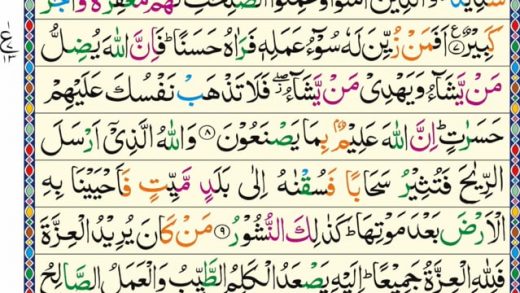 شَدِيْدٌ ۬ؕ وَالَّذِيْنَ اٰمَنُوْا وَعَمِلُوا الصّٰلِحٰتِ لَهُمْ مَّغْفِرَةٌ وَّاَجْرٌ
كَبِيْرٌ ﴿۷﴾ اَفَمَنْ زُيِّنَ لَهٗ سُوْٓءُ عَمَلِهٖ فَرَاٰهُ حَسَنًا ؕ فَاِنَّ اللّٰهَ يُضِلُّ
ع ۱۳
مَنْ يَّشَآءُ وَيَهْدِيْ مَنْ يَّشَآءُ ۖؗ فَلَا تَذْهَبْ نَفْسُكَ عَلَيْهِمْ
حَسَرٰتٍ ؕ اِنَّ اللّٰهَ عَلِيْمٌۢ بِمَا يَصْنَعُوْنَ ﴿۸﴾ وَاللّٰهُ الَّذِيْٓ اَرْسَلَ
الرِّيٰحَ فَتُثِيْرُ سَحَابًا فَسُقْنٰهُ اِلٰى بَلَدٍ مَّيِّتٍ فَاَحْيَيْنَا بِهِ
الْاَرْضَ بَعْدَ مَوْتِهَا ؕ كَذٰلِكَ النُّشُوْرُ ﴿۹﴾ مَنْ كَانَ يُرِيْدُ الْعِزَّةَ
فَلِلّٰهِ الْعِزَّةُ جَمِيْعًا ؕ اِلَيْهِ يَصْعَدُ الْكَلِمُ الطَّيِّبُ وَالْعَمَلُ الصَّالِحُ